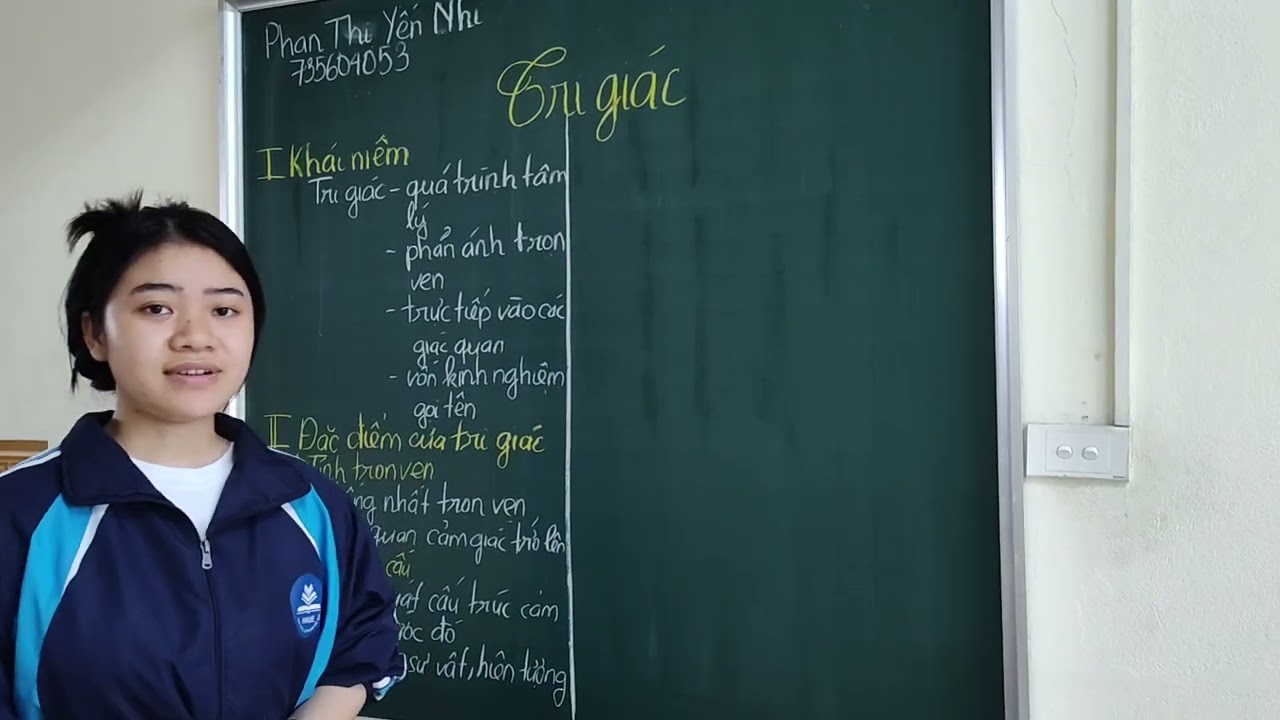 Phan Thị Yến Nhi
735604053
Tri giác
I Khái niệm
Tri giác - quá trình tâm
lý
- phản ánh trọn
vẹn
- trực tiếp vào các
giác quan
- vốn kinh nghiệm
gọi tên
II Đặc điểm của tri giác
Tính trọn vẹn
nhất trọn vẹn
quan cảm giác trở lên
cấu
cấu trúc cảm
đó
sự vật, hiện tượng